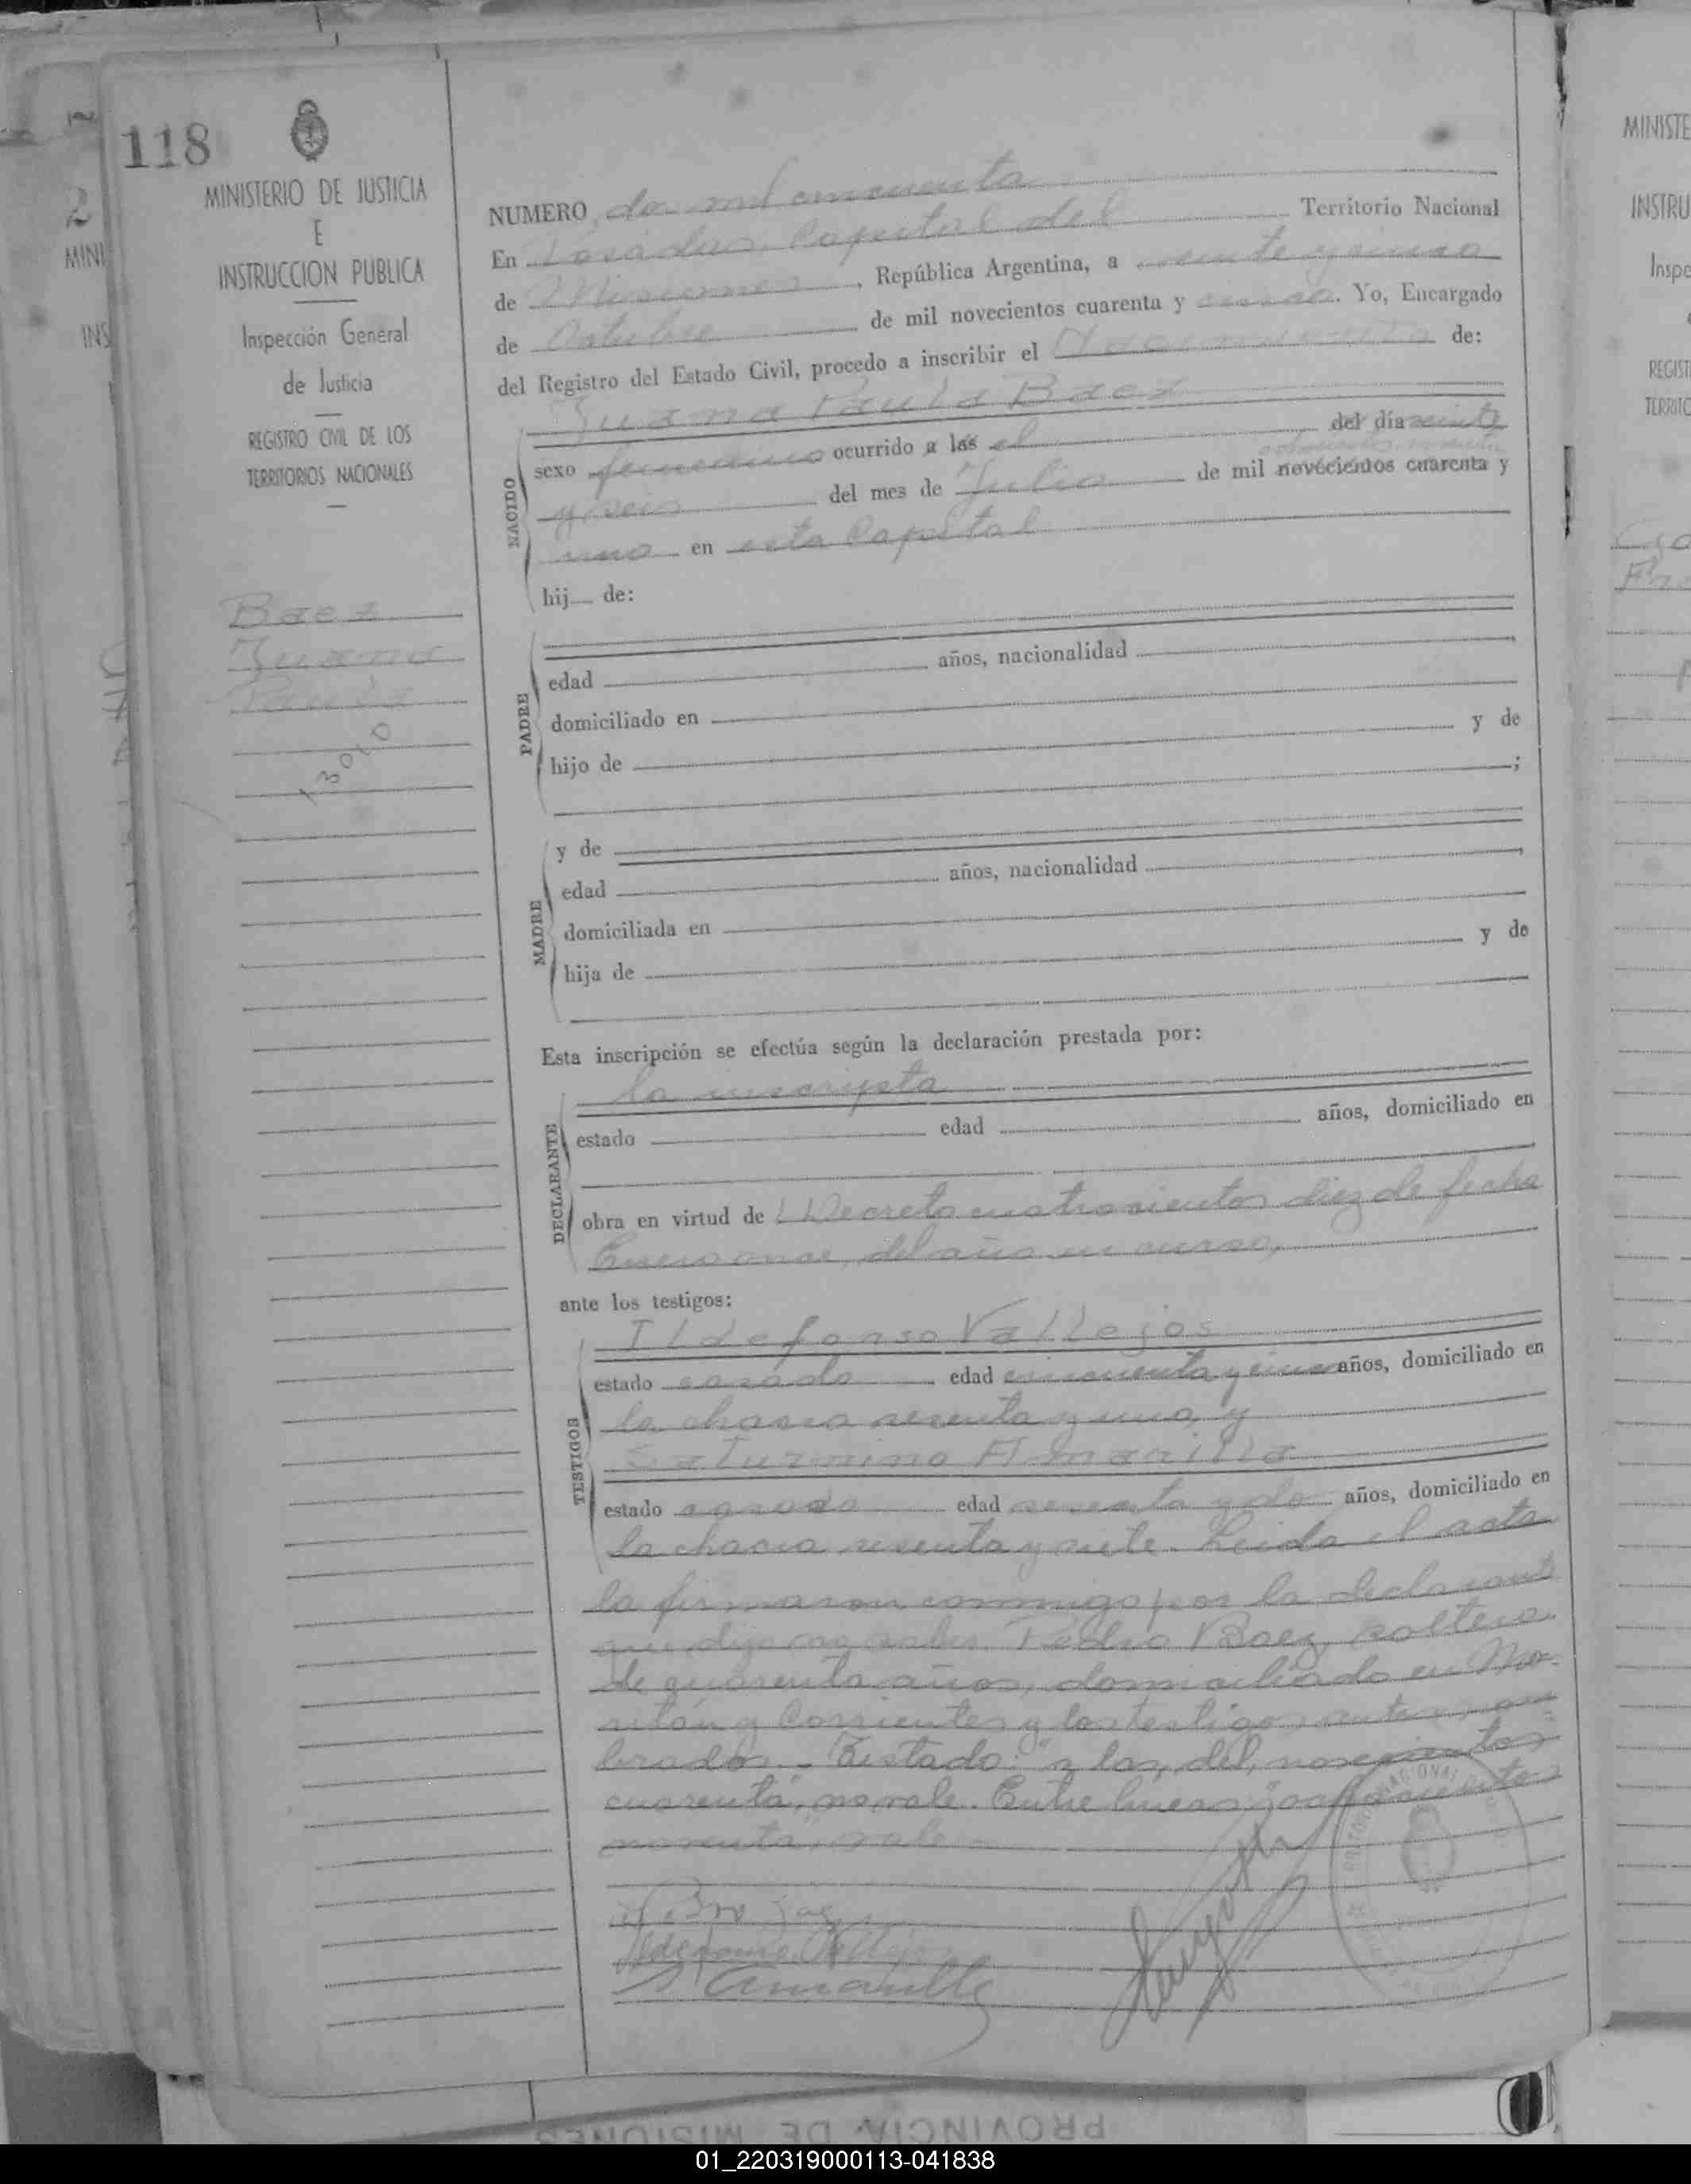 118
MINISTERIO DE JUSTICIA
E
INSTRUCCION PUBLICA
Inspección General
de Justicia
REGISTRO CIVIL DE LOS
TERRITORIOS NACIONALES
Baez
Juana
Paula
NUMERO dos mil cincuenta
En Posadas, Capital del Territorio Nacional
de Misiones, República Argentina, a veinte y cinco
de Octubre de mil novecientos cuarenta y cinco. Yo, Encargado
del Registro del Estado Civil, procedo a inscribir el Nacimiento de:
Juana Paula Baez
NACIDO
sexo femenino ocurrido a las el del día veinte
ochocientos noventa
y seis del mes de Julio de mil novecientos cuarenta y
uno en esta Capital
hij de:
PADRE
edad años, nacionalidad
domiciliado en
hijo de y de
;
MADRE
y de
edad años, nacionalidad
domiciliada en
hija de y de
Esta inscripción se efectúa según la declaración prestada por:
la inscripta
DECLARANTE
estado edad años, domiciliado en
obra en virtud de Decreto cuatrocientos diez de fecha
Enero once del año en curso,
ante los testigos:
TESTIGOS
Ildefonso Vallejos
estado casado edad cincuenta y cinco años, domiciliado en
la chacra sesenta y una, y
Saturnino Amarilla
estado casado edad y dos años, domiciliado en
la chacra sesenta y siete. Leida el acta
la firmaron conmigo por la declarante
que dijo no saber Pedro Baez, soltero
de cuarenta años, domiciliado en
y Corrientes y los testigos antes nom-
brados.- Testado: "a las, del, novecientos
cuarenta", no vale. Entre lineas: "ochocientos
noventa", vale
Ildefonso Vallejos
S Amarilla
MINISTE
INSTRU
Inspe
REGIST
TERRITO
MINI
INS
PROVINCIA DE MISIONES
01_220319000113-041838